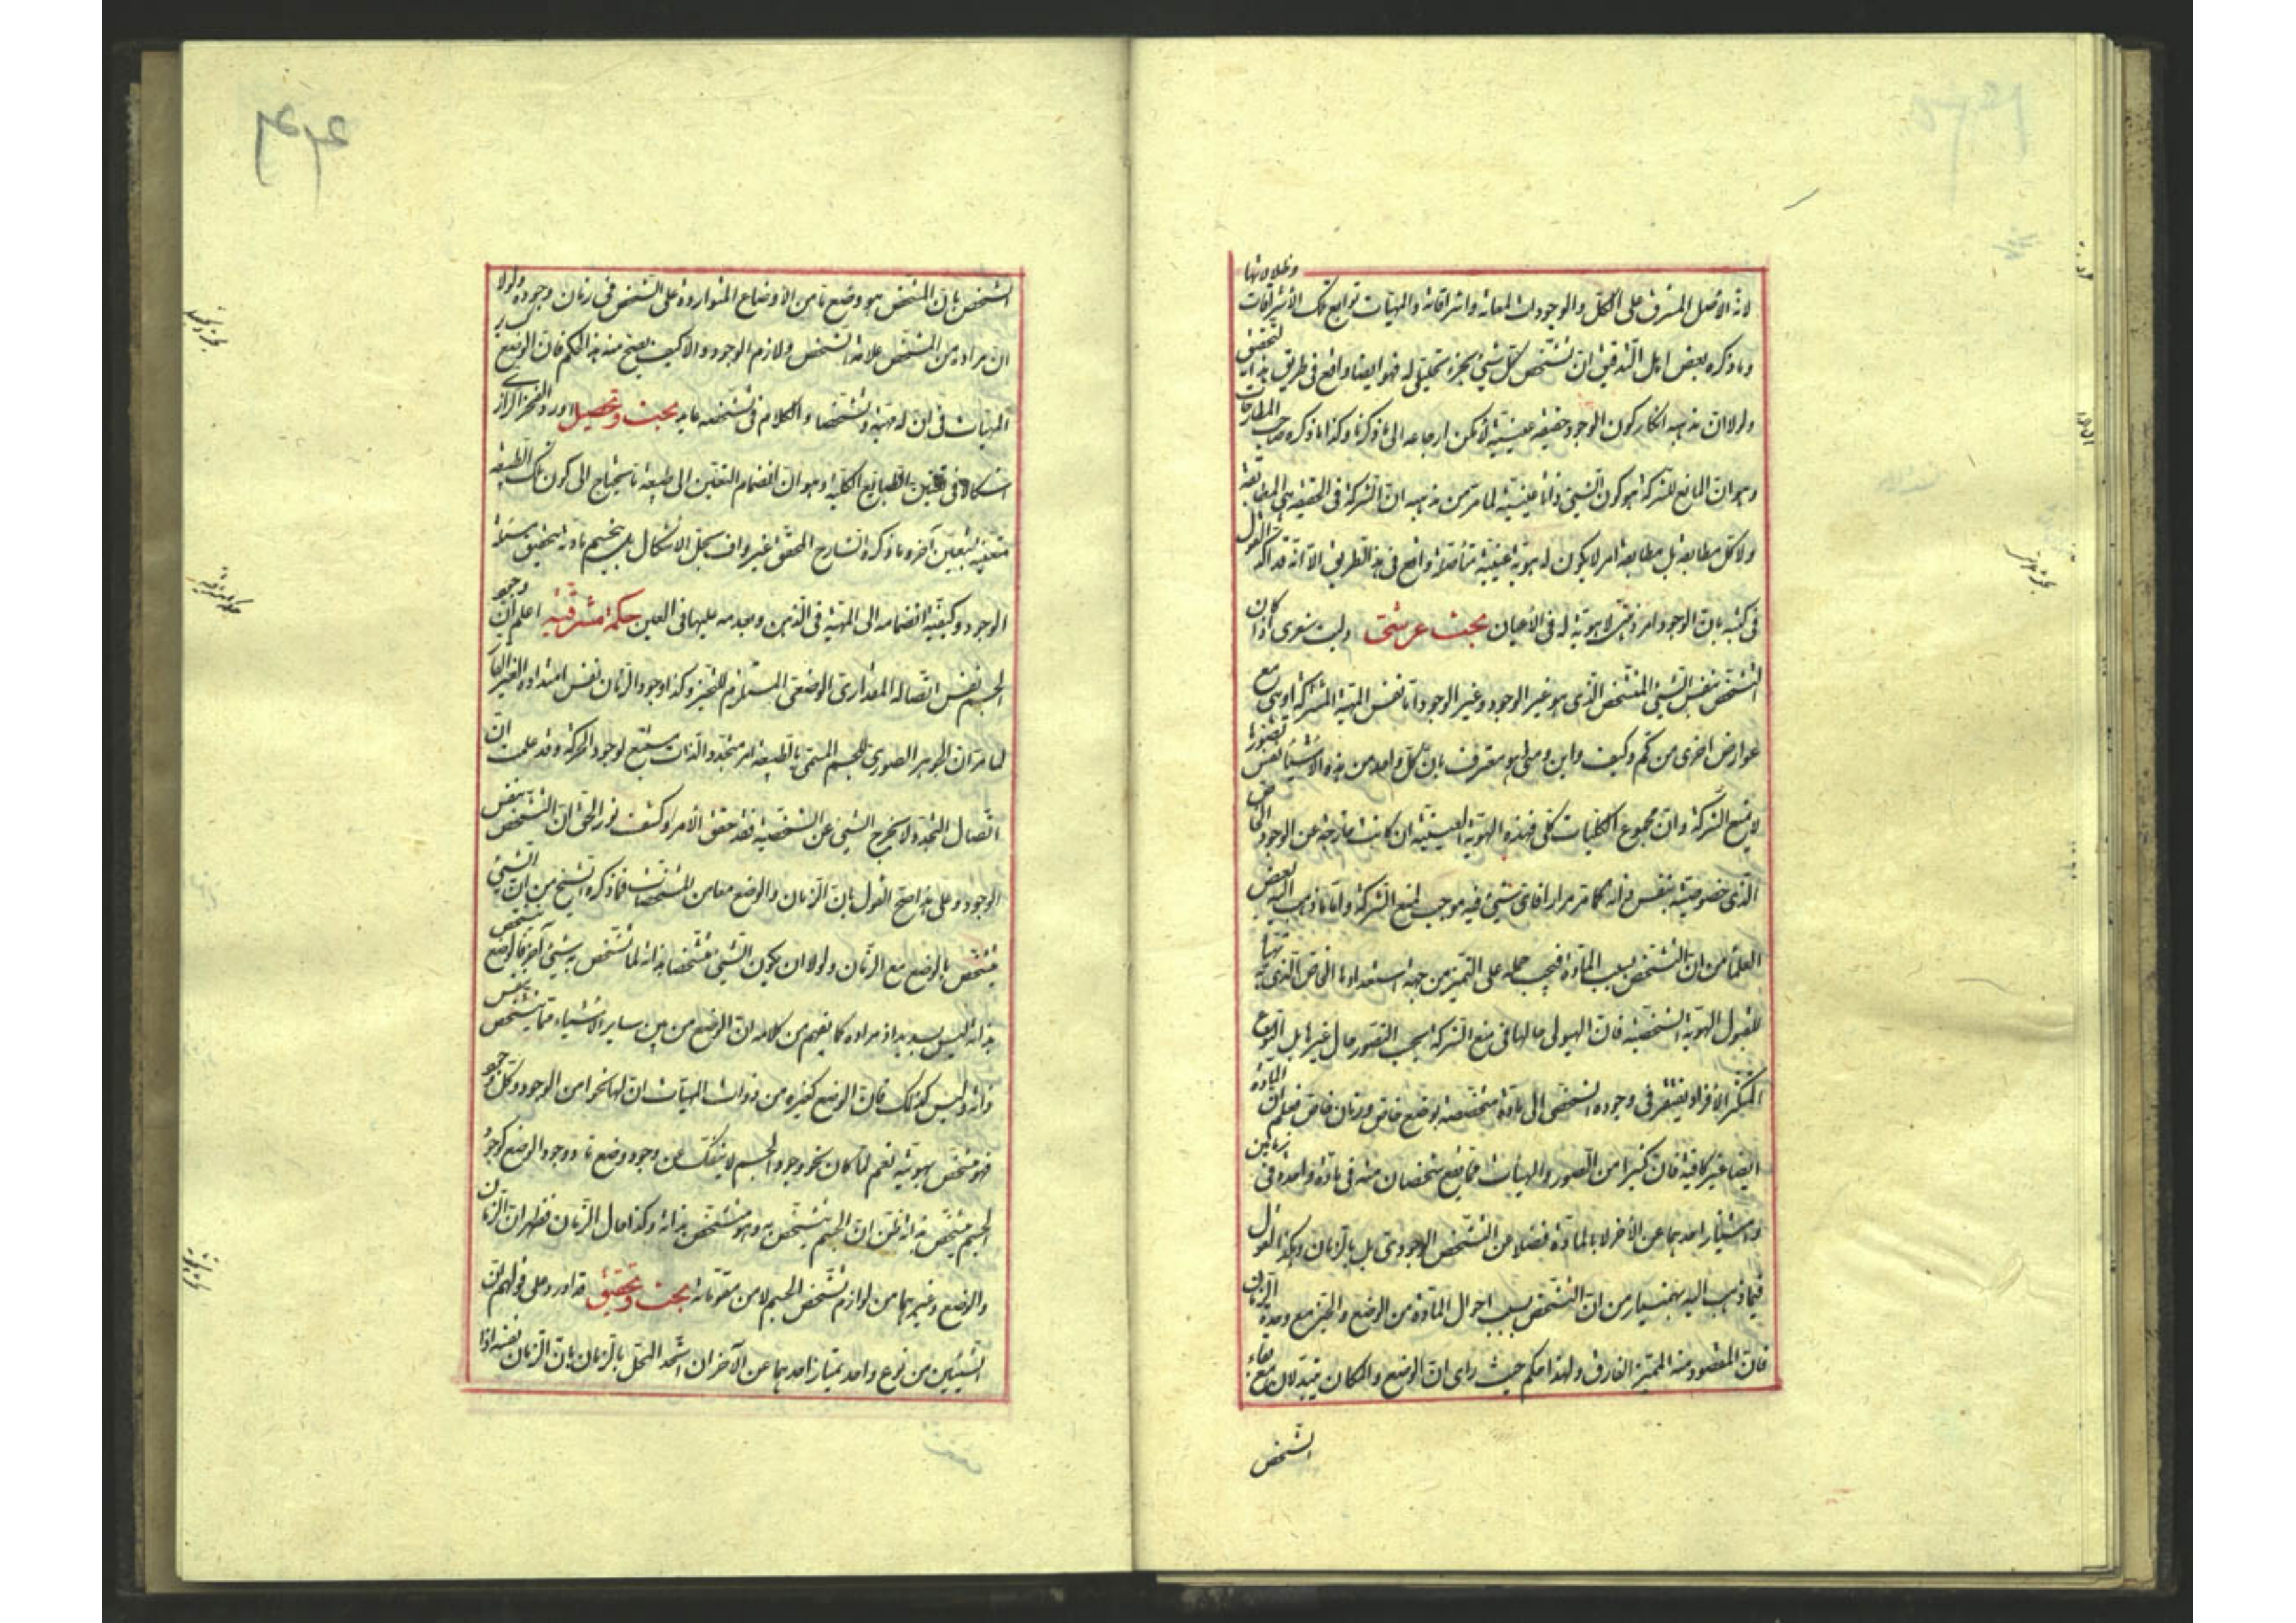 لانه الاصل المشرف على الكل والوجودات لمعاته واشراقاته والمهيات توابع تلك الاشراقات وظلالاتها
وما ذكره بعض اهل التدقيق ان تشخص كل شيئ بجزء تحليلى له فهو ايضا واقع فى طريق هذا التحقيق
ولولا ان مذهبه انكار كون الوجود حقيقة عينية لامكن ارجاعه الى ما ذكرنا وكذا ما ذكره صاحب المطارحات
وهو ان المانع للشركة هو كون الشيئ ذاتا عينية لما مر من مذهبه ان الشركة فى الحقيقة هى المطابقة
ولا كل مطابقة بل مطابقة امر لا يكون له هوية عينية متأصلة واقع فى هذا الطريق الا انه قد اكد القول
فى كتبه بان الوجود امر ذهنى لا هوية له فى الاعيان بحث عرشى وليت شعرى اذا كان
التشخص بنفس الشيئ المتشخص الذى هو غير الوجود وغير الوجود اما نفس المهية المشتركة او هى مع
عوارض اخرى من كم وكيف واين ومتى هو معترف بان كل واحد من هذه الاشياء نفس تصوره
لا يمنع الشركة وان مجموع الكليات كلى فهذه الهوية العينية ان كانت خارجة عن الوجود الخاص
الذى خصوصيته بنفس ذاته كما مر مرارا فاى شيئ فيه موجب لمنع الشركة واما ما ذهب اليه بعض
العلماء من ان التشخص بسبب المادة فيجب حمله على التميز من جهة استعدادها الخاص الذى به تتهيأ
لقبول الهوية الشخصية فان الهيولى حالها فى منع الشركة بحسب التصور حال غيرها بل النوع
المتكثر الافراد يفتقر فى وجوده الشخصى الى مادة متخصصة بوضع خاص وزمان خاص فعلم ان المادة
ايضا غير كافية فان كثيرا من الصور والهيأت مما يقع شخصان منه فى مادة واحدة فى زمانين
وامتياز احدهما عن الآخر لا بالمادة فضلا عن التشخص الوجودى بل بالزمان وهكذا القول
فيما ذهب اليه بهمنيار من ان التشخص بسبب احوال المادة من الوضع والحيز مع وحدة الزمان
فان المقصود منه المميز الفارق ولهذا حكم حيث راى ان الوضع والمكان يتبدلان مع بقاء
الشخص
الشخص بان المشخص هو وضع ما من الاوضاع المتواردة على الشخص فى زمان وجوده ولولا
ان مراده من المشخص علامة التشخص ولازم الوجود والا كيف يصح منه هذا الحكم فان الوضع كسائر
المهيات فى ان له مهية وتشخصا والكلام فى تشخصه عايد بحث وتحصيل اورد الفخر الرازى
اشكالا فى تعين الطبايع الكلية وهو ان انضمام التعين الى طبيعة ما يحتاج الى كون تلك الطبيعة
متعينة بتعين آخر وما ذكره الشارح المحقق غير واف بحل الاشكال بل ينحسم مادته بتحقيق مسئلة
الوجود وكيفية انضمامه الى المهية فى الذهن وتقدمه عليها فى العين حكمة مشرقية اعلم ان وجود
الجسم نفس اتصاله المقدارى الوضعى المستلزم للتحيز وكذا وجود الزمان نفس امتداده الغير القار
لما مر ان الجوهر الصورى للجسم المسمى بالطبيعة امر متجدد الذات مستتبع لوجود الحركة وقد علمت ان
اتصال التجدد لا يخرج الشيئ عن الشخصية فقد حقق الامر وكشف نور الحق ان التشخص بنفس
الوجود وعلى هذا صح القول بان الزمان والوضع معا من المشخصات فما ذكره الشيخ من ان الشيئ
يتشخص بالوضع مع الزمان ولولا ان يكون الشيئ متشخصا بذاته لما تشخص به شيئ آخر فالوضع يتشخص
بذاته ليس بسديد اذ مراده كما يفهم من كلامه ان الوضع من بين ساير الاشياء مما يتشخص بنفس
ذاته وليس كذلك فان الوضع كغيره من ذوات المهيات ان لها نحوا من الوجود وكل وجود
فهو متشخص بهويته نعم لما كان نحو وجود الجسم لا ينفك عن وجود وضع ما ووجود الوضع كوجود
الجسم متشخص بذاته ظن ان الجسم يتشخص به وهو متشخص بذاته وكذا حال الزمان فظهر ان الزمان
والوضع وغيرهما من لوازم تشخص الجسم لا من مقوماته بحث وتحقيق قد اورد على قولهم ان
الشيئين من نوع واحد يمتاز احدهما عن الآخر ان اتحد المحل بالزمان بان الزمان نفسه اذا